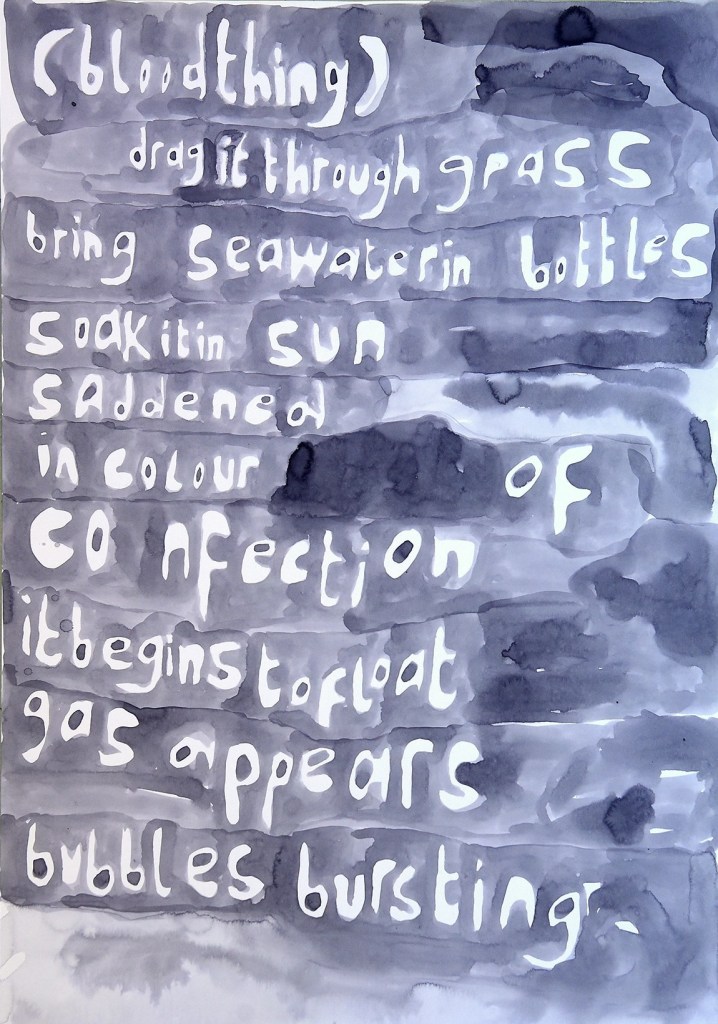 (bloodthing)
drag it through grass
bring seawater in bottles
soak it in sun
saddened
in colour of
confection
it begins to float
gas appears
bubbles bursting